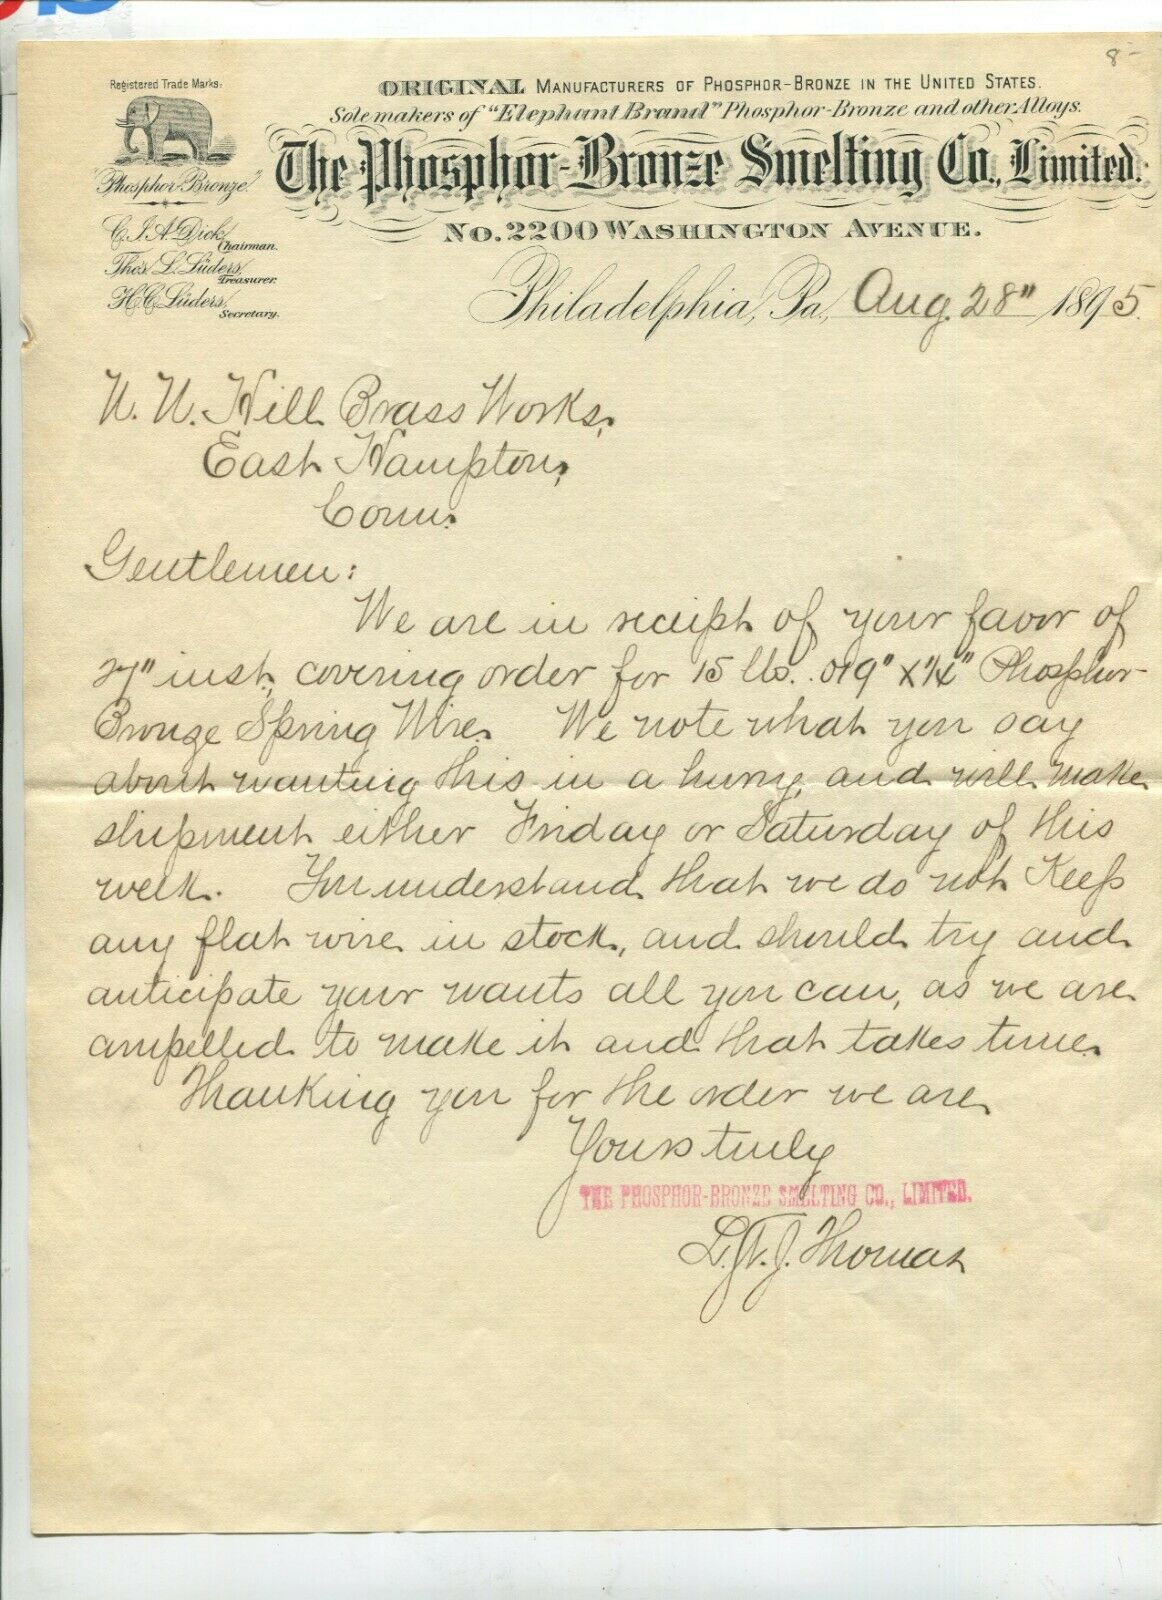 8-
Registered Trade Marks:
"Phosphor-Bronze."
C. J. A. Dick, Chairman.
Thos. L. Lüders, Treasurer.
H. C. Lüders, Secretary.
ORIGINAL MANUFACTURERS OF PHOSPHOR-BRONZE IN THE UNITED STATES.
Sole makers of "Elephant Brand" Phosphor-Bronze and other Alloys.
The Phosphor-Bronze Smelting Co., Limited.
No. 2200 WASHINGTON AVENUE.
Philadelphia, Pa., Aug. 28" 1895.
N. N. Hill Brass Works,
East Hampton,
Conn.
Gentlemen:
We are in receipt of your favor of
27" inst., covering order for 15 lbs. .019" x 1/4" Phosphor-
Bronze Spring Wire. We note what you say
about wanting this in a hurry, and will make
shipment either Friday or Saturday of this
week. You understand that we do not keep
any flat wire in stock, and should try and
anticipate your wants all you can, as we are
compelled to make it and that takes time.
Thanking you for the order we are
Yours truly
THE PHOSPHOR-BRONZE SMELTING CO., LIMITED.
Thomas